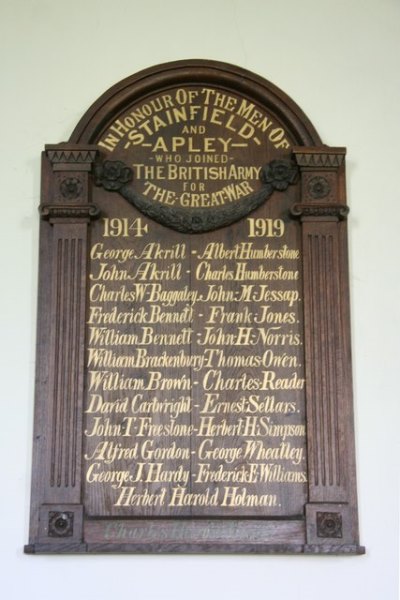 IN HONOUR OF THE MEN OF
STAINFIELD
AND
APLEY
- WHO JOINED -
THE BRITISH ARMY
FOR
THE GREAT WAR
1914 1919
George Akrill - Albert Humberstone
John Akrill - Charles Humberstone
Charles W. Baggaley. John M. Jessap.
Frederick Bennett - Frank Jones.
William Bennett - John H. Norris.
William Brackenbury - Thomas Owen.
William Brown - Charles Reader
David Cartwright - Ernest Sellars.
John T. Freestone - Herbert H. Simpson
Alfred Gordon - George Wheatley.
George J. Hardy - Frederick F. Williams.
Herbert Harold Holman.
Charles